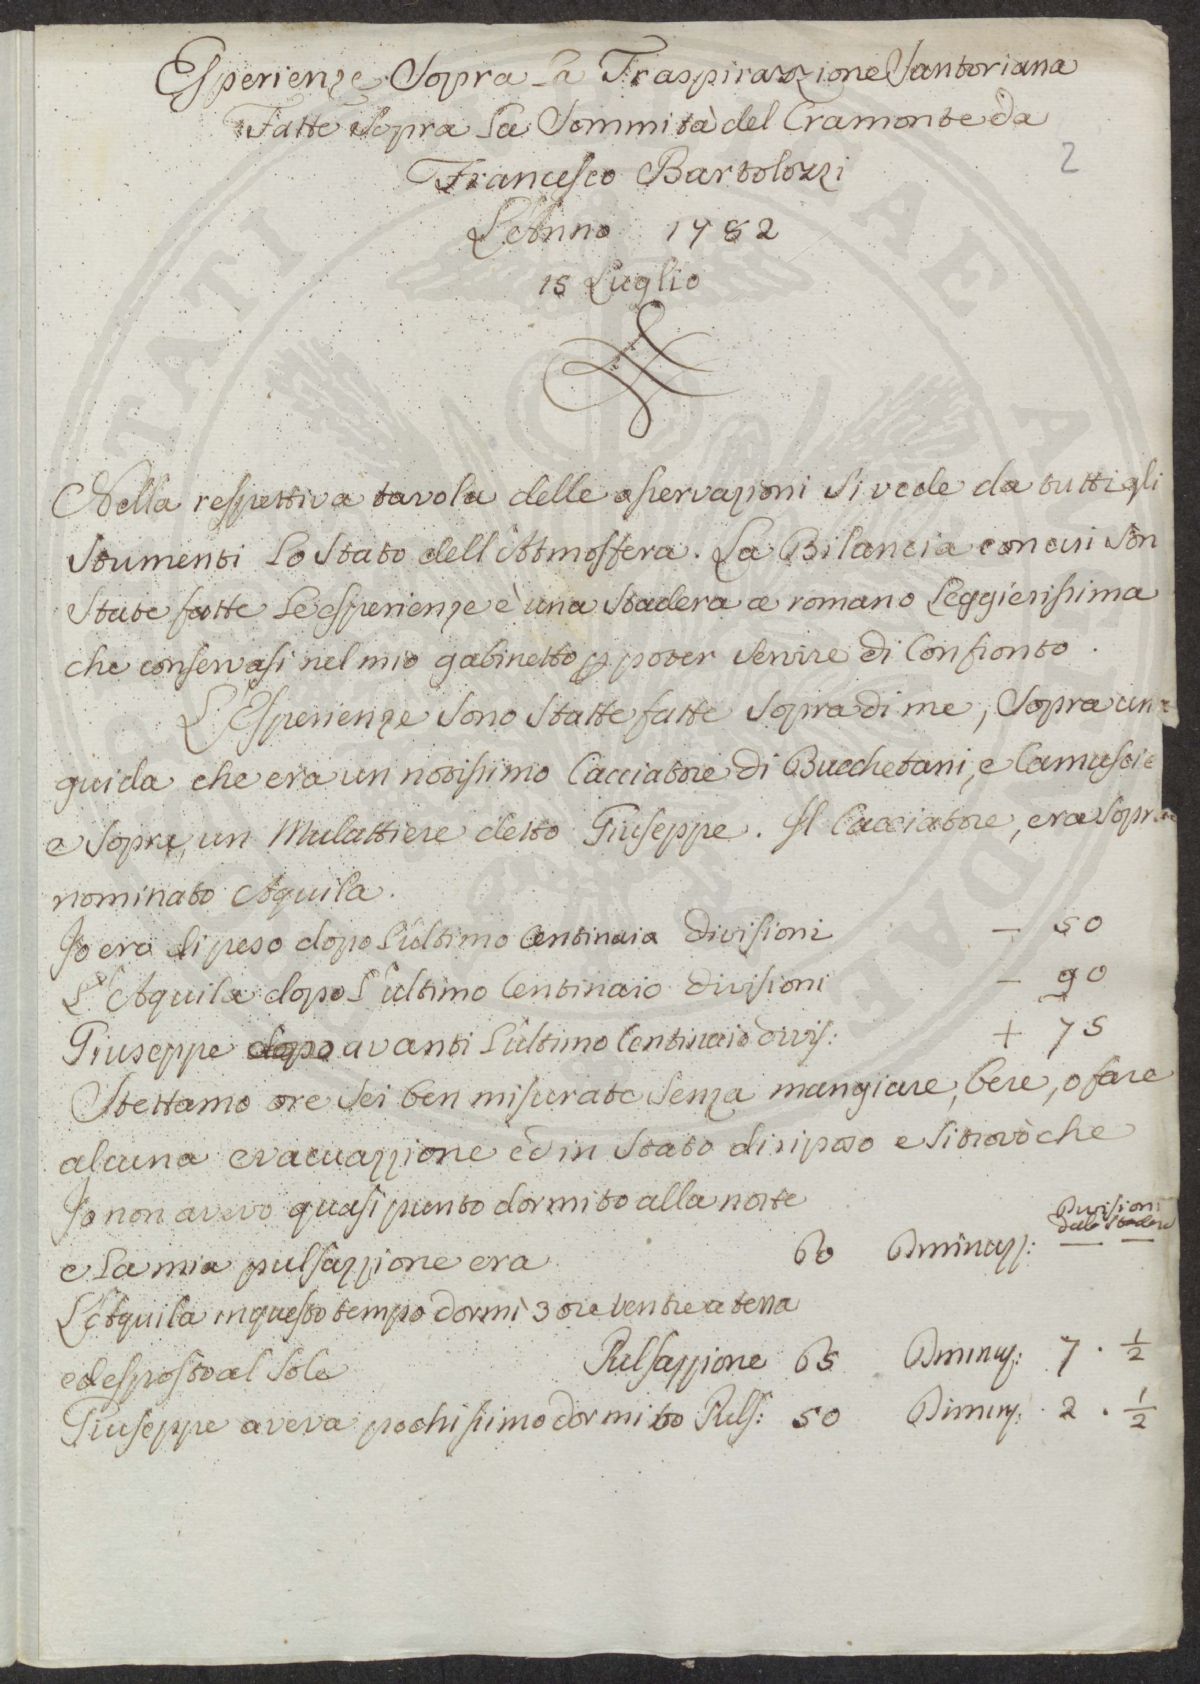 Esperienze Sopra La Traspirazzione Santoriana
Fatte Sopra La Sommità del Cramonte da
Francesco Bartolozzi
L'Anno 1782
15 Luglio
2
Nella respettiva tavola delle osservazioni si vede da tutti gli
Strumenti Lo Stato dell'Atmosfera. La Bilancia con cui son
State fatte Le esperienze è una Stadera a romano Leggierissima
che conservasi nel mio gabinetto p poter Servire di Confronto.
L'Esperienze Sono State fatte Sopra di me, Sopra una
guida che era un notissimo Cacciatore di Bucchetani, e Camuscie
e Sopra un Mulattiere detto Giuseppe. Il Cacciatore, era Sopra
nominato Aquila.
Io era di peso dopo L'ultimo Centinaia divisioni — 50
L'Aquila dopo L'ultimo Centinaio divisioni — 90
Giuseppe dopo avanti L'ultimo Centinaio divis: + 75
Stettamo ore Sei ben misurate Senza mangiare, bere, o fare
alcuna evacuazzione ed in Stato di riposo e Si trovò che
Io non avevo quasi punto dormito alla notte
Divisioni
della Stadera
e La mia pulsazzione era 60 Diminuzz: — —
L'Aquila in questo tempo dormì 3 ore ventre a terra
ed esposto al Sole Pulsazzione 65 Diminuz: 7 . 1/2
Giuseppe aveva pochissimo dormito Puls: 50 Diminuz: 2 . 1/2